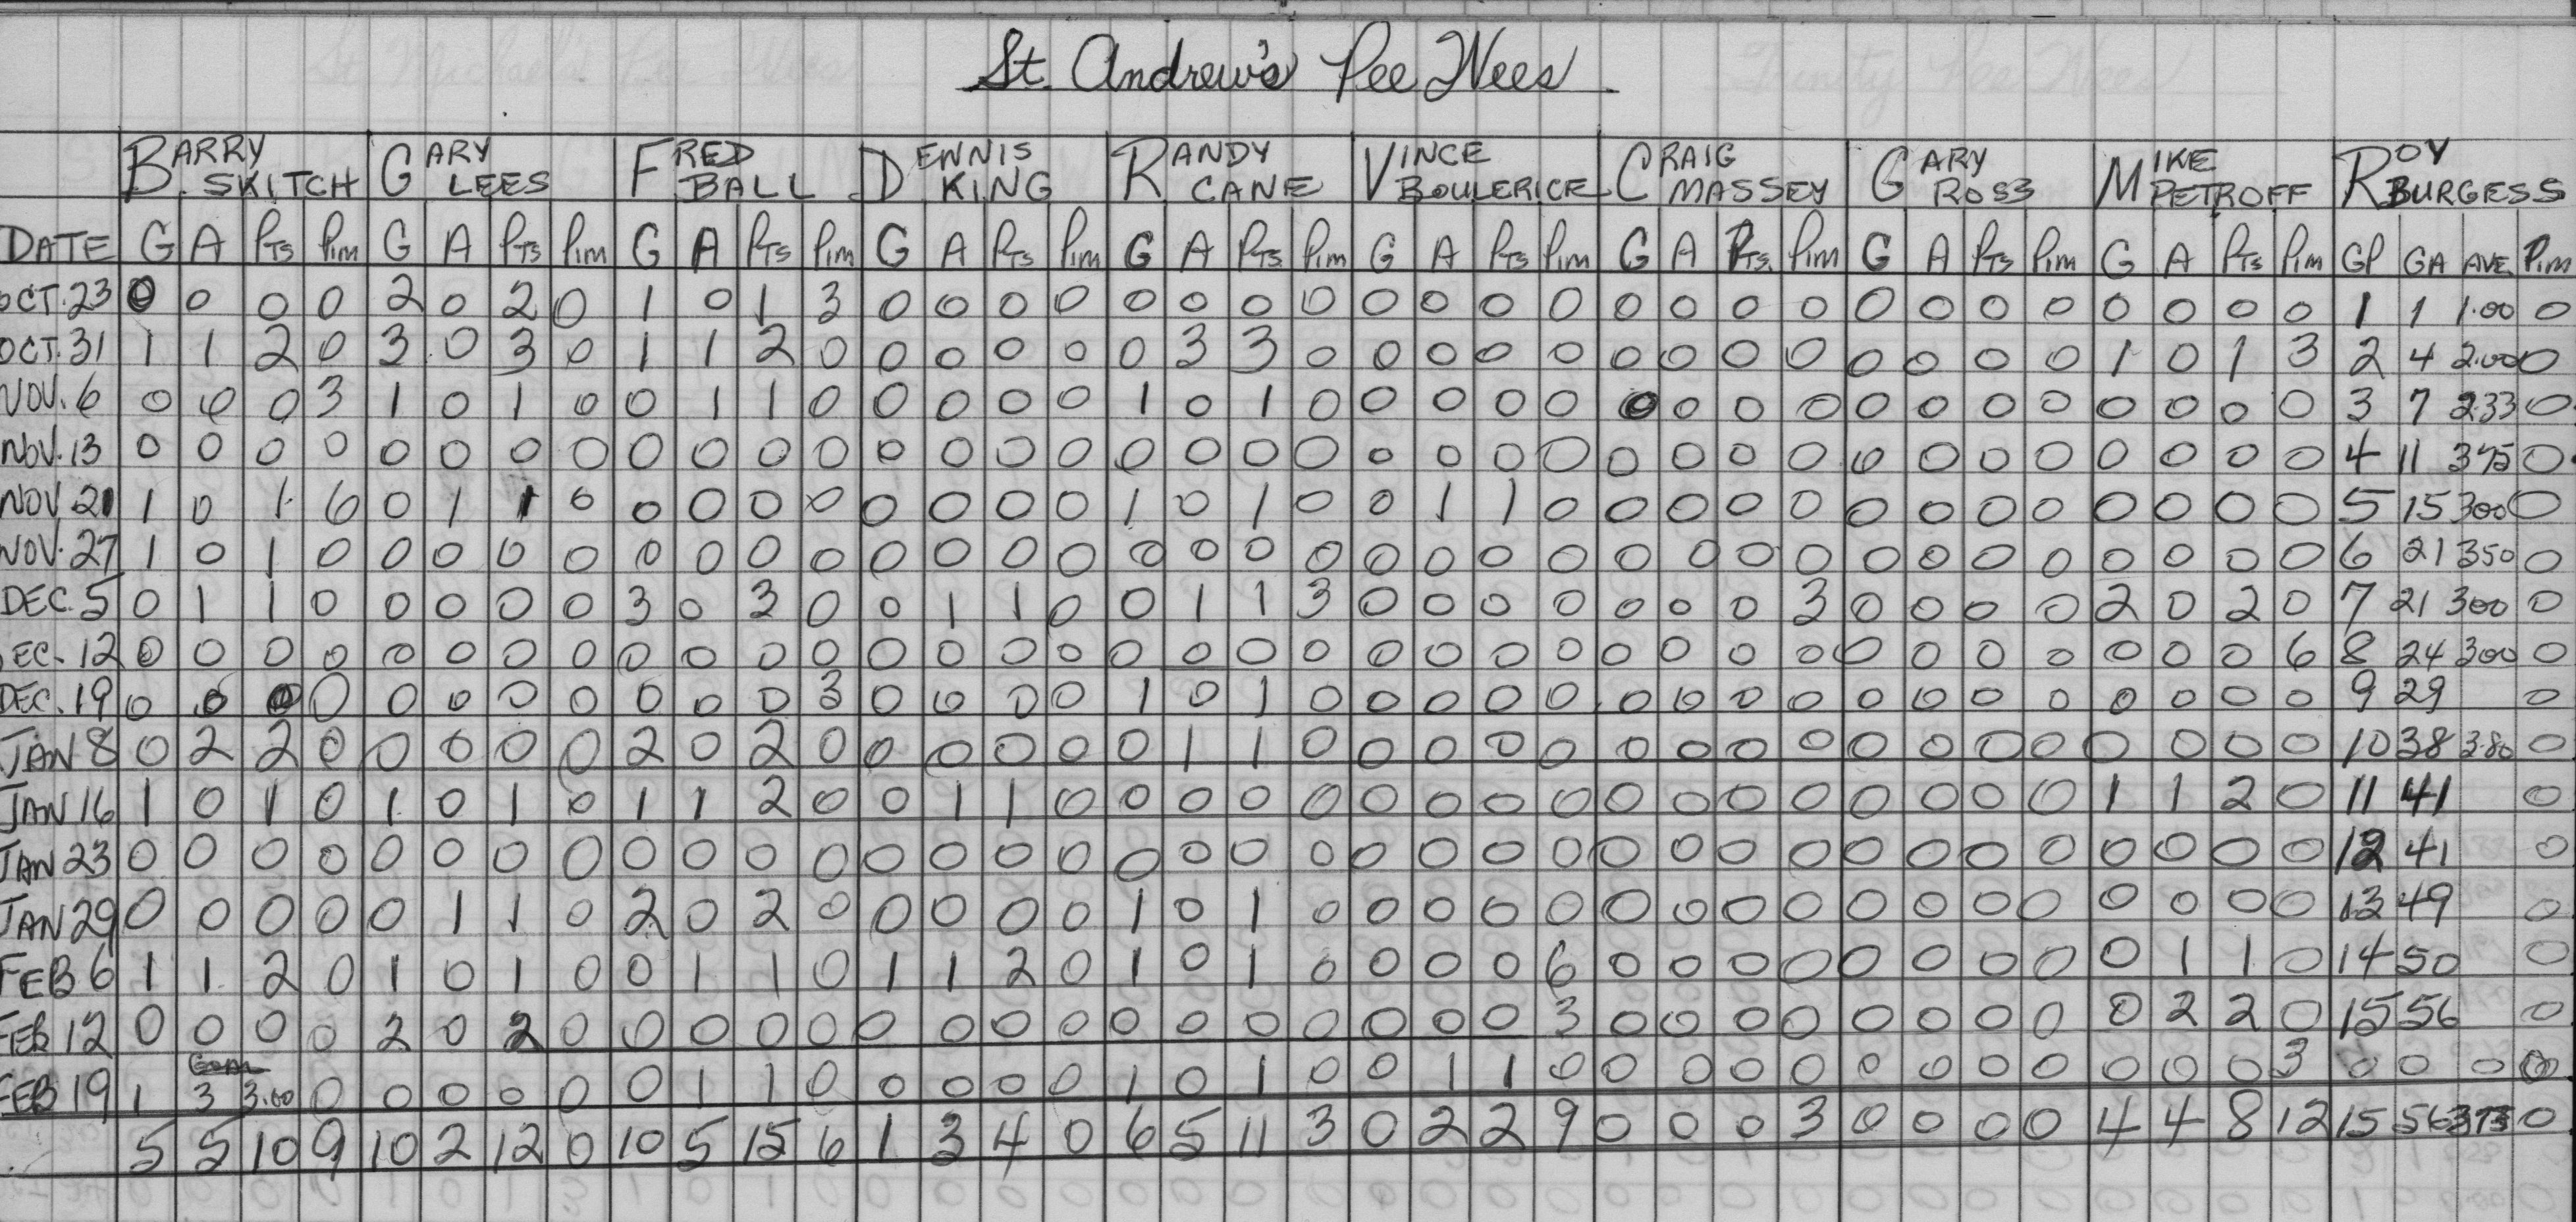 St. Andrew's Pee Wees
BARRY SKITCH GARY LEES FRED BALL DENNIS KING RANDY CANE VINCE BOULERICE CRAIG MASSEY GARY ROSS MIKE PETROFF ROY BURGESS
DATE G A Pts Pim G A Pts Pim G A Pts Pim G A Pts Pim G A Pts Pim G A Pts Pim G A Pts Pim G A Pts Pim G A Pts Pim GP GA AVE Pim
OCT. 23 0 0 0 0 2 0 2 0 1 0 1 3 0 0 0 0 0 0 0 0 0 0 0 0 0 0 0 0 0 0 0 0 0 0 0 0 1 1 1.00 0
OCT. 31 1 1 2 0 3 0 3 0 1 1 2 0 0 0 0 0 0 3 3 0 0 0 0 0 0 0 0 0 0 0 0 0 1 0 1 3 2 4 2.00 0
NOV. 6 0 0 0 3 1 0 1 0 0 1 1 0 0 0 0 0 1 0 1 0 0 0 0 0 0 0 0 0 0 0 0 0 0 0 0 0 3 7 2.33 0
NOV. 13 0 0 0 0 0 0 0 0 0 0 0 0 0 0 0 0 0 0 0 0 0 0 0 0 0 0 0 0 0 0 0 0 0 0 0 0 4 11 375 0
NOV 21 1 0 1 6 0 1 1 0 0 0 0 0 0 0 0 0 1 0 1 0 0 1 1 0 0 0 0 0 0 0 0 0 0 0 0 0 5 15 300 0
NOV. 27 1 0 1 0 0 0 0 0 0 0 0 0 0 0 0 0 0 0 0 0 0 0 0 0 0 0 0 0 0 0 0 0 0 0 0 0 6 21 350 0
DEC. 5 0 1 1 0 0 0 0 0 3 0 3 0 0 1 1 0 0 1 1 3 0 0 0 0 0 0 0 3 0 0 0 0 2 0 2 0 7 21 300 0
EC. 12 0 0 0 0 0 0 0 0 0 0 0 0 0 0 0 0 0 0 0 0 0 0 0 0 0 0 0 0 0 0 0 0 0 0 0 6 8 24 300 0
DEC. 19 0 0 0 0 0 0 0 0 0 0 0 3 0 0 0 0 1 0 1 0 0 0 0 0 0 0 0 0 0 0 0 0 0 0 0 0 9 29 0
JAN 8 0 2 2 0 0 0 0 0 2 0 2 0 0 0 0 0 0 1 1 0 0 0 0 0 0 0 0 0 0 0 0 0 0 0 0 0 10 38 3.80 0
JAN 16 1 0 1 0 1 0 1 0 1 1 2 0 0 1 1 0 0 0 0 0 0 0 0 0 0 0 0 0 0 0 0 0 1 1 2 0 11 41 0
JAN 23 0 0 0 0 0 0 0 0 0 0 0 0 0 0 0 0 0 0 0 0 0 0 0 0 0 0 0 0 0 0 0 0 0 0 0 0 12 41 0
JAN 29 0 0 0 0 0 1 1 0 2 0 2 0 0 0 0 0 1 0 1 0 0 0 0 0 0 0 0 0 0 0 0 0 0 0 0 0 13 49 0
FEB 6 1 1 2 0 1 0 1 0 0 1 1 0 1 1 2 0 1 0 1 0 0 0 0 6 0 0 0 0 0 0 0 0 0 1 1 0 14 50 0
FEB 12 0 0 0 0 2 0 2 0 0 0 0 0 0 0 0 0 0 0 0 0 0 0 0 3 0 0 0 0 0 0 0 0 0 2 2 0 15 56 0
FEB 19 1 3 3.00 0 0 0 0 0 0 1 1 0 0 0 0 0 1 0 1 0 0 1 1 0 0 0 0 0 0 0 0 0 0 0 0 3 0 0 0 0
5 5 10 9 10 2 12 0 10 5 15 6 1 3 4 0 6 5 11 3 0 2 2 9 0 0 0 3 0 0 0 0 4 4 8 12 15 56 373 0